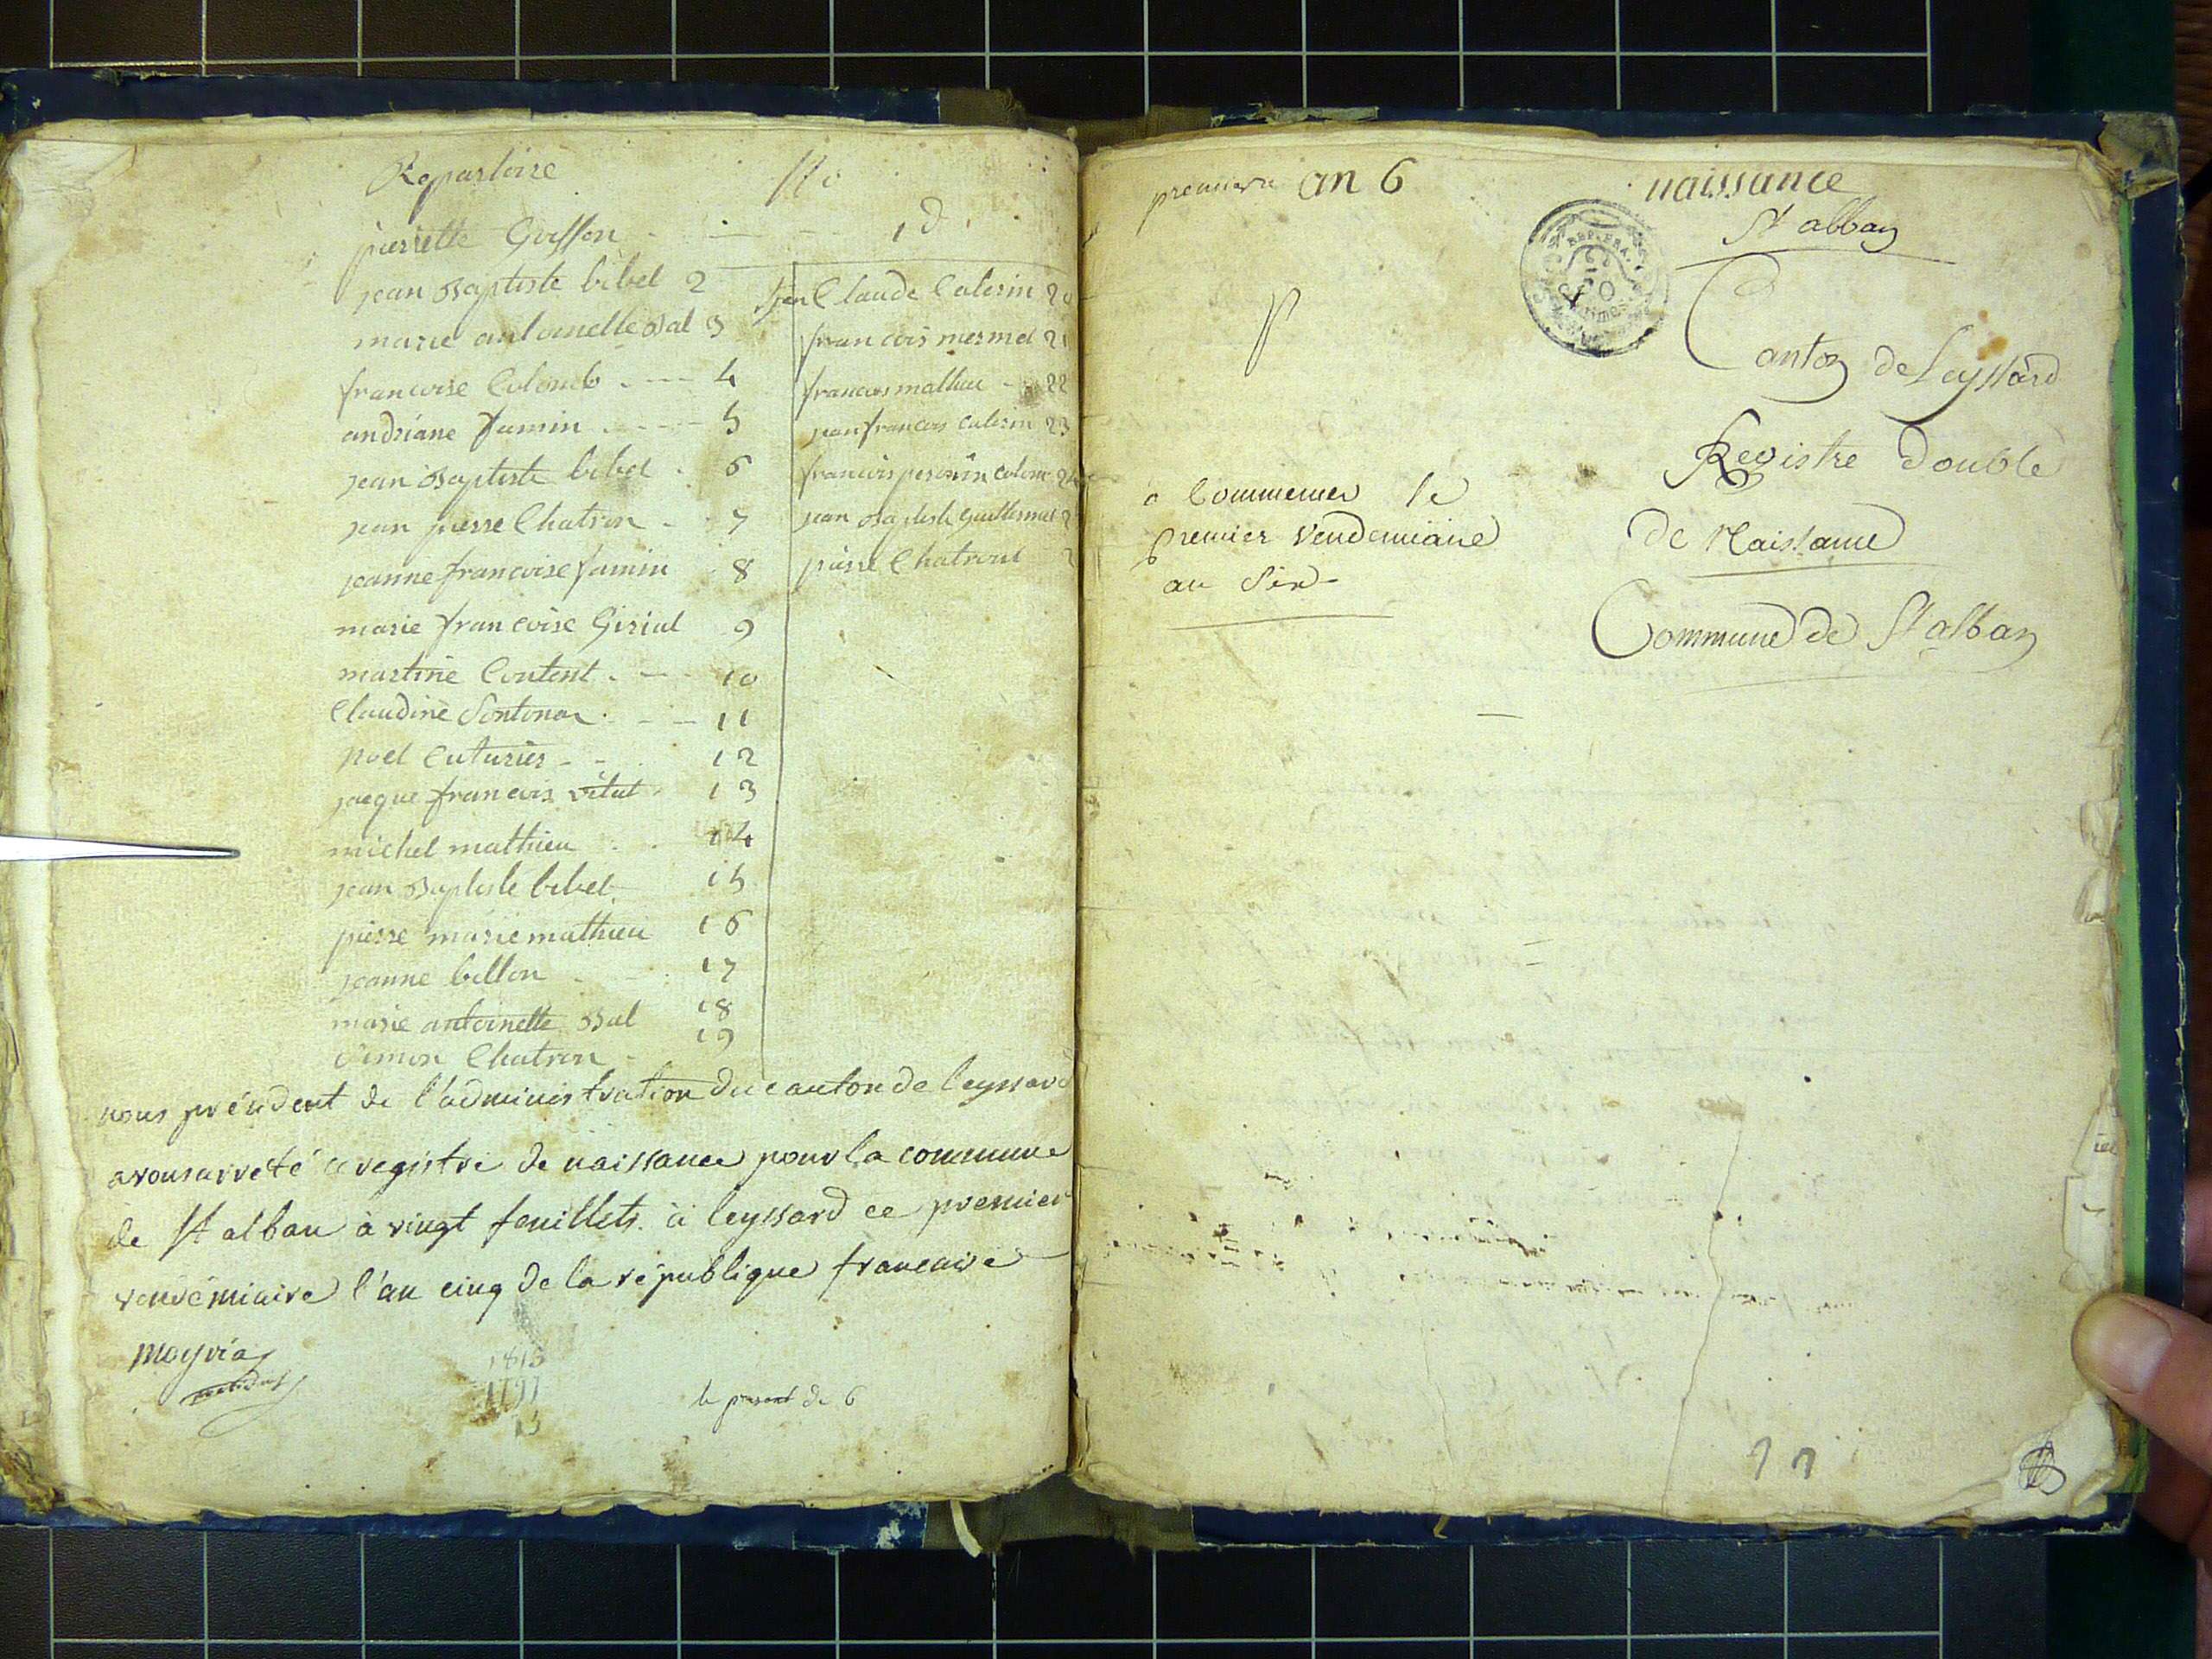 Repartoire No
pierrette Goiffon 1
jean Baptiste bibel 2
marie antoinette Bal 3
francoise Colomb 4
andriane famin 5
jean Baptiste bibel 6
jean pierre Chatron 7
jeanne francoise famin 8
marie francoise Girial 9
martine Content 10
Claudine Sontonax 11
noel Cuturier 12
jacque francois vitut 13
michel mathieu 14
jean Baptiste bibel 15
pierre marie mathieu 16
jeanne billon 17
marie antoinette Bal 18
Simon Chatron 19
jean Claude Caterin 20
francois mermet 21
francois mathieu 22
jean francois Caterin 23
francois
jean Baptiste Guillermet
pierre Chatron
nous président de l'administration du canton de leyssard
avons arreté ce registre de naissance pour la commune
de St alban à vingt feuillets. à leyssard ce premier
vendémiaire l'an cinq de la république francaise
moyria
président
1815
1797
13
le present de 6
premiere an 6 naissance
St alban
REP. FRA.
Canton de Leyssard
Registre double
de Naissance
Commune de St alban
a Commencer le
premier Vendemiaire
an Six